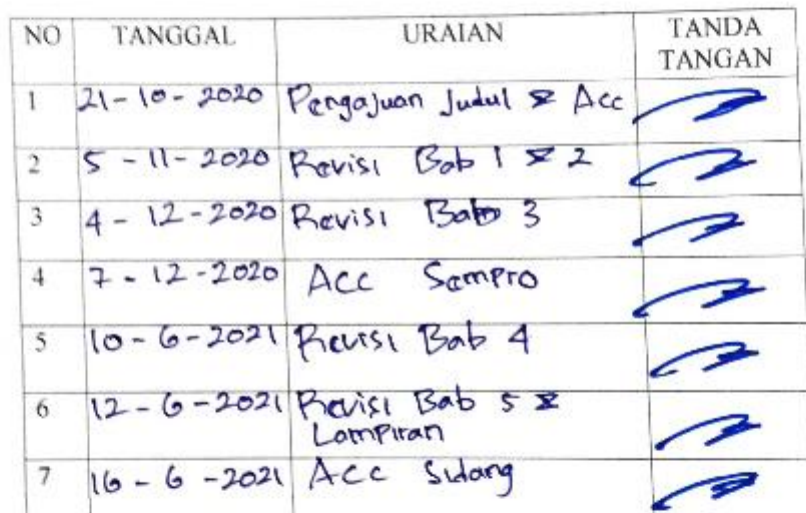 NO TANGGAL URAIAN TANDA TANGAN
1 21-10-2020 Pengajuan Judul & Acc
2 5-11-2020 Revisi Bab 1 & 2
3 4-12-2020 Revisi Bab 3
4 7-12-2020 ACC Sempro
5 10-6-2021 Revisi Bab 4
6 12-6-2021 Revisi Bab 5 &
Lampiran
7 16-6-2021 ACC Sidang